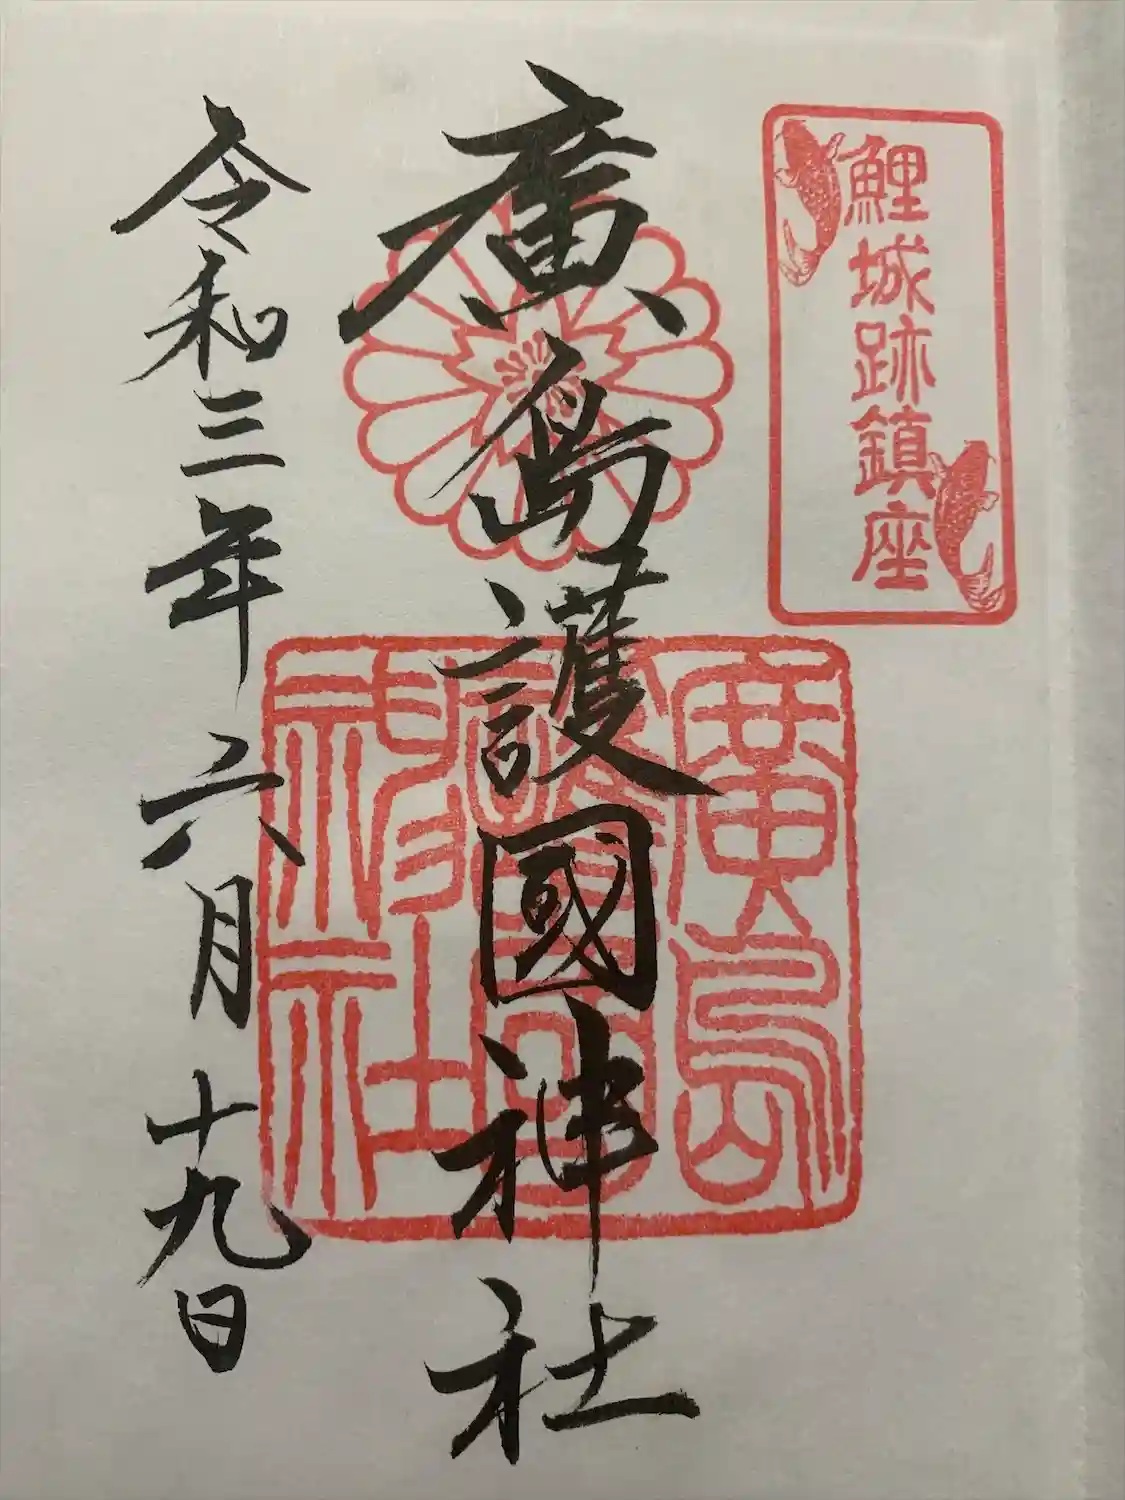 鯉城跡鎮座
廣島護國神社
廣島
護國
神社
令和三年六月十九日